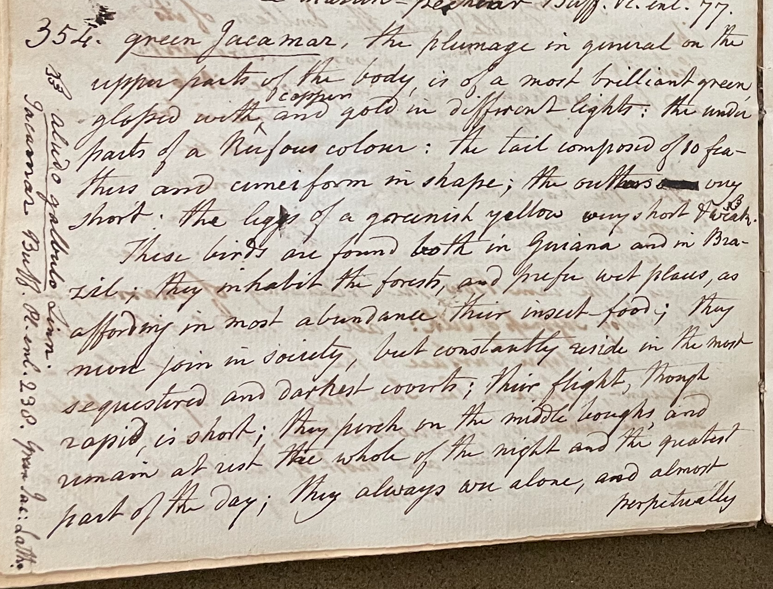 martin-pecheur Buff. Pl. enl. 77.
354. green Jacamar, the plumage in general on the
upper parts of the body, is of a most brilliant green,
copper
glossed with ^ and gold in different lights: the under
parts of a Rufous colour: the tail composed of 10 fea-
thers and cuneiform in shape; the outters very
short. the legs of a greenish yellow very short & weak.
These birds are found both in Guiana and in Bra-
zil; they inhabit the forests, and prefer wet places, as
affording in most abundance their insect-food; they
never join in society, but constantly reside in the most
sequestered and darkest coverts; their flight, though
rapid, is short; they perch on the middle boughs and
remain at rest the whole of the night and the greatest
part of the day; they always are alone, and almost
perpetually
aludo galbulo Linn.
Jacamar Buff. Pl. enl. 238. Green Jac: Lath.